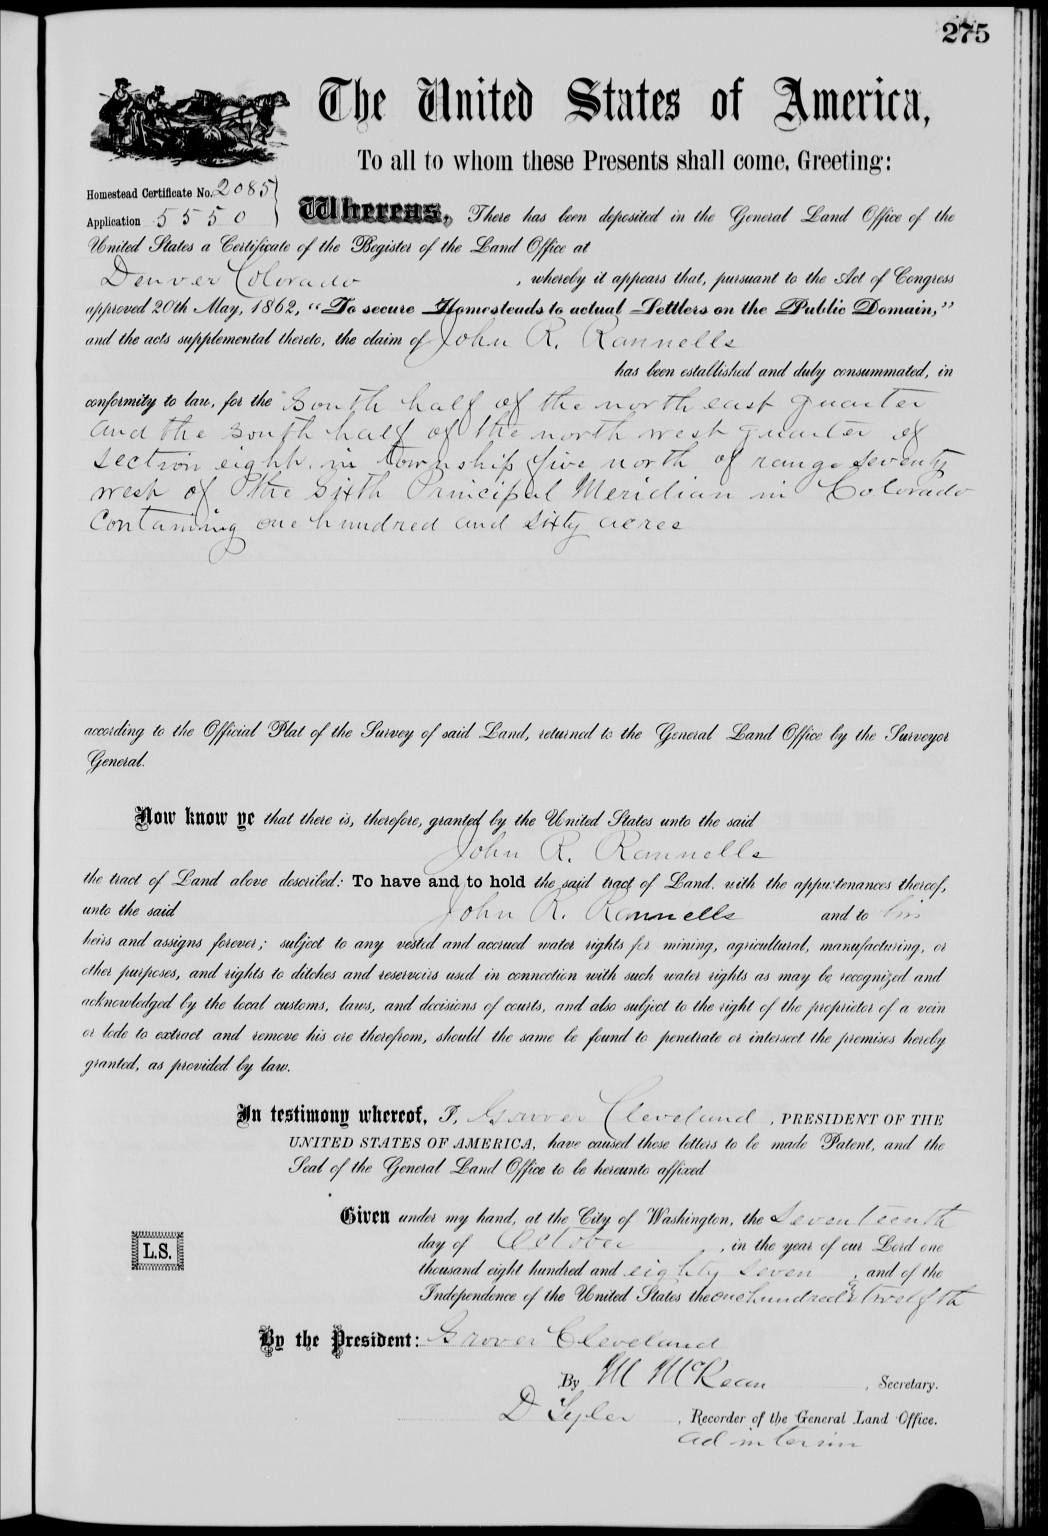 275
The United States of America,
To all to whom these Presents shall come, Greeting:
Homestead Certificate No. 2085
Application 5550
Whereas, There has been deposited in the General Land Office of the
United States a Certificate of the Register of the Land Office at
Denver Colorado, whereby it appears that, pursuant to the Act of Congress
approved 20th May, 1862, "To secure Homesteads to actual Settlers on the Public Domain,"
and the acts supplemental thereto, the claim of John R. Rannells
has been established and duly consummated, in
conformity to law, for the South half of the north east quarter
and the south half of the north west quarter of
section eight in township five north of range seventy
west of the Sixth Principal Meridian in Colorado
Containing one hundred and sixty acres
according to the Official Plat of the Survey of said Land, returned to the General Land Office by the Surveyor
General.
Now know ye that there is, therefore, granted by the United States unto the said
John R. Rannells
the tract of Land above described: To have and to hold the said tract of Land, with the appurtenances thereof,
unto the said John R. Rannells and to his
heirs and assigns forever; subject to any vested and accrued water rights for mining, agricultural, manufacturing, or
other purposes, and rights to ditches and reservoirs used in connection with such water rights as may be recognized and
acknowledged by the local customs, laws, and decisions of courts, and also subject to the right of the proprietor of a vein
or lode to extract and remove his ore therefrom, should the same be found to penetrate or intersect the premises hereby
granted, as provided by law.
In testimony whereof, I, Grover Cleveland, PRESIDENT OF THE
UNITED STATES OF AMERICA, have caused these letters to be made Patent, and the
Seal of the General Land Office to be hereunto affixed
Given under my hand, at the City of Washington, the seventeenth
day of October, in the year of our Lord one
thousand eight hundred and eighty seven, and of the
Independence of the United States the one hundred & twelfth
L.S.
By the President: Grover Cleveland
By M McKean, Secretary.
D , Recorder of the General Land Office.
ad interim